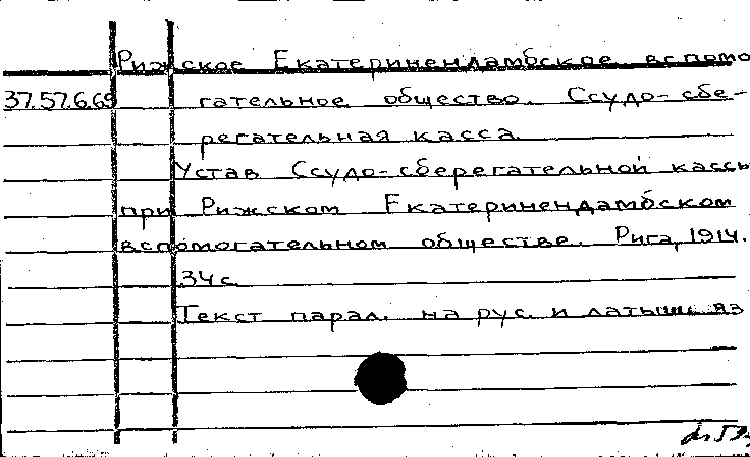 Рижское Екатеринендамбское вспомо
37.57.6.69 гательное общество. Ссудо-сбе-
регательная касса.
Устав Ссудо-сберегательной кассы
при Рижском Екатеринендамбском
вспомогательном обществе. Рига, 1914.
34 с.
Текст парал. на рус. и латыш. яз